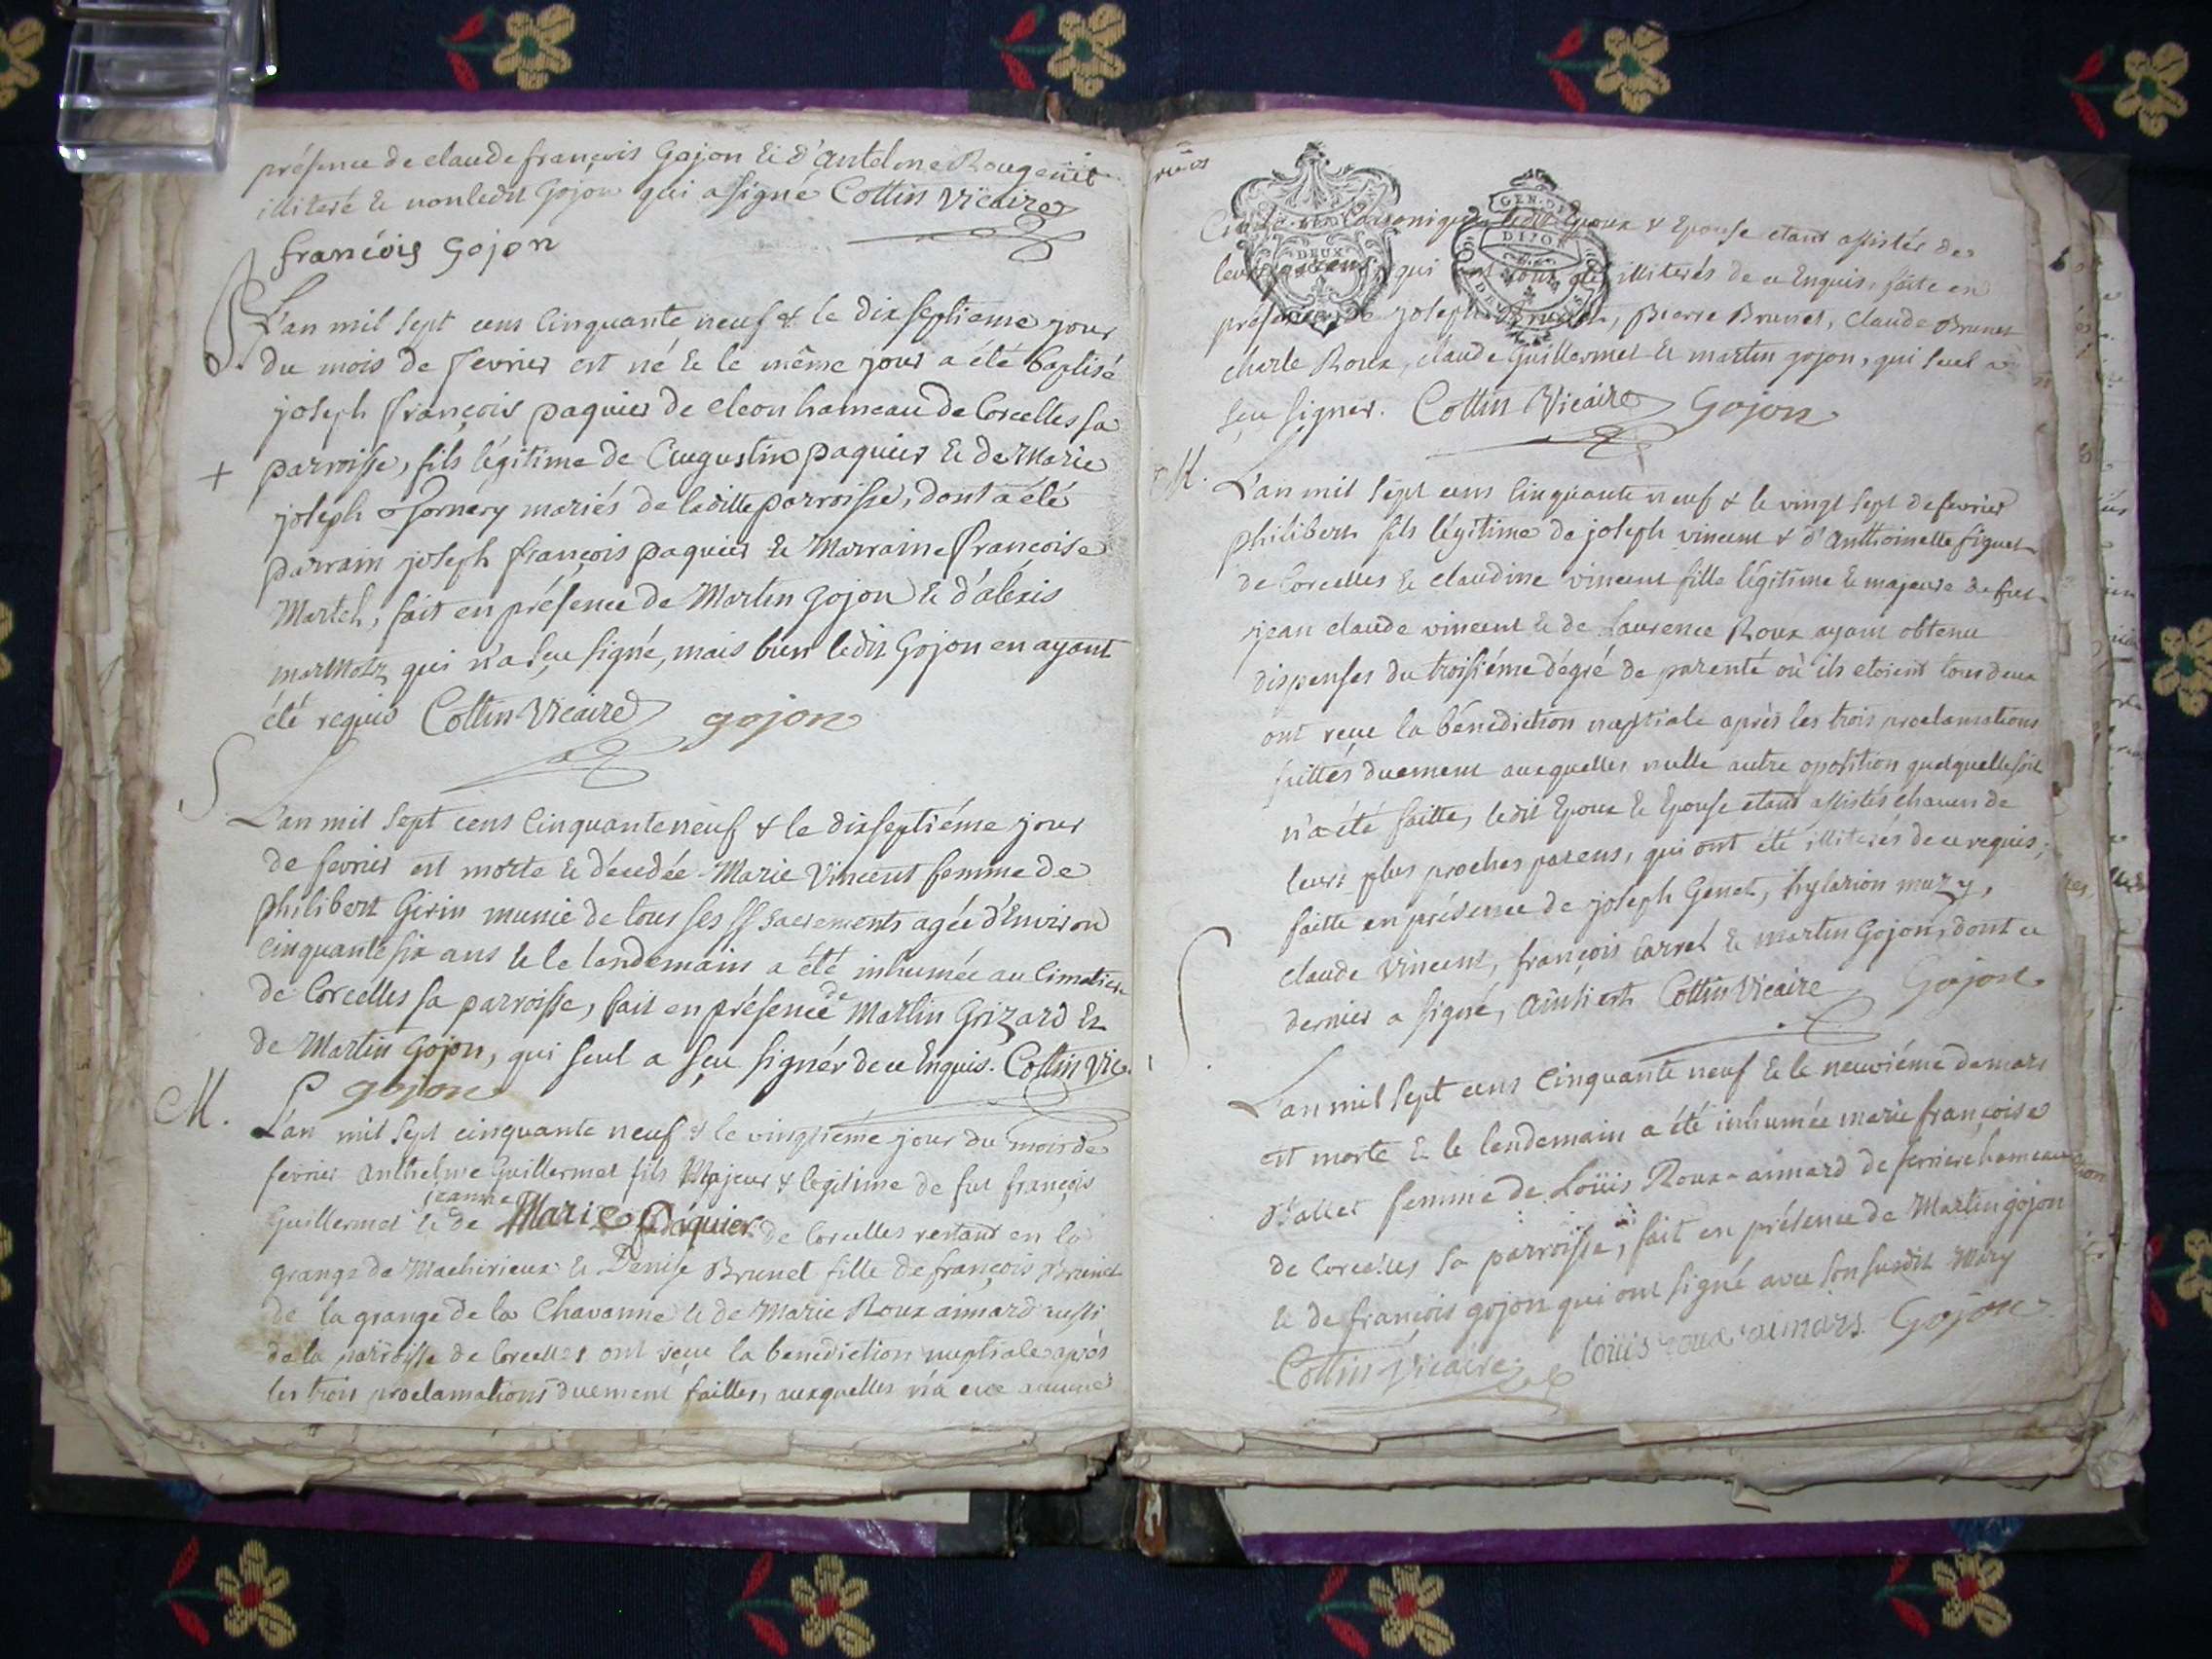 présence de claude françois Gojon & d'Antelme Rougemit
illiteré & non ledit Gojon qui a signé Collin Vicaire
françois Gojon
L'an mil sept cens Cinquante neuf & le dix septieme jour
du mois de fevrier est né & le même jour a été Baptisé
joseph françois paquier de cleon hameau de Corcelles sa
+ parroisse, fils légitime de Augustin paquier & de Marie
joseph mariés de laditte parroisse, dont a été
parrain joseph françois paquier & Marraine françoise
Martel, fait en présence de Martin Gojon & d'aléxis
qui n'a sçu signé, mais bien ledit Gojon en ayant
été requis Collin Vicaire gojon
S.
L'an mil sept cens Cinquante neuf & le dixseptiéme jour
de fevrier est morte & décedée Marie Vincent femme de
philibert Girin munie de tous ses SS sacrements agée d'Environ
cinquante six ans & le lendemain a été inhumée au Cimetiere
de Corcelles sa parroisse, fait en présence de Martin Grizard &
de Martin Gojon, qui seul a sçu signér de ce Enquis. Collin Vic.
gojon
M. L'an mil sept cinquante neuf & le vingtiéme jour du mois de
fevrier Anthelme Guillermet fils Majeur & légitime de fut françois
Guillermet & de jeanne Marie paquier de Corcelles restant en la
grange de Machirieux & Denise Brunet fille de françois Brunet
de la grange de la Chavanne & de Marie Roux aimard aussi
de la parroisse de Corcelles ont reçue la benediction nuptiale après
les trois proclamations duement faittes, auxquelles n'a eue aucune
GEN. DI
DIJON
DEUX
Canonique ledit Epoux & Epouse etant assistés de
leurs parens qui ont tous été illiterés de ce Enquis, faite en
présence de joseph Brunet, Pierre Brunet, Claude Brunet
charle Roux, claude Guillermet & martin gojon, qui seul a
sçu signer. Collin Vicaire Gojon
M. L'an mil sept cens Cinquante neuf & le vingt sept de fevrier
philibert fils légitime de joseph vincent & d'Anthoinette figuet
de Corcelles & claudine vincent fille légitime & majeure de fut
jean claude vincent & de Laurence Roux ayant obtenu
dispenses du troisiéme dégré de parenté où ils etoient tous deux
ont reçue la bénédiction nuptiale après les trois proclamations
faittes duement auxquelles nulle autre oposition quelquelle soit
n'a été faitte, ledit Epoux & Epouse etant assistés chacun de
leurs plus proches parens, qui ont été illiterés de ce requis;
faitte en présence de joseph Genet, hylarion muzy,
claude Vincent, françois Carrel & martin Gojon, dont ce
dernier a signé, Ainsi est Collin Vicaire Gojon
L'an mil sept cens Cinquante neuf & le neuviéme de mars
est morte & le lendemain a été inhumée marie françoise
femme de Loüis Roux-aimard de ferriere hameau
de Corcelles sa parroisse, fait en présence de Martin gojon
& de françois gojon qui ont signé avec son susdit Mary
Collin Vicaire louis roux aimars Gojon